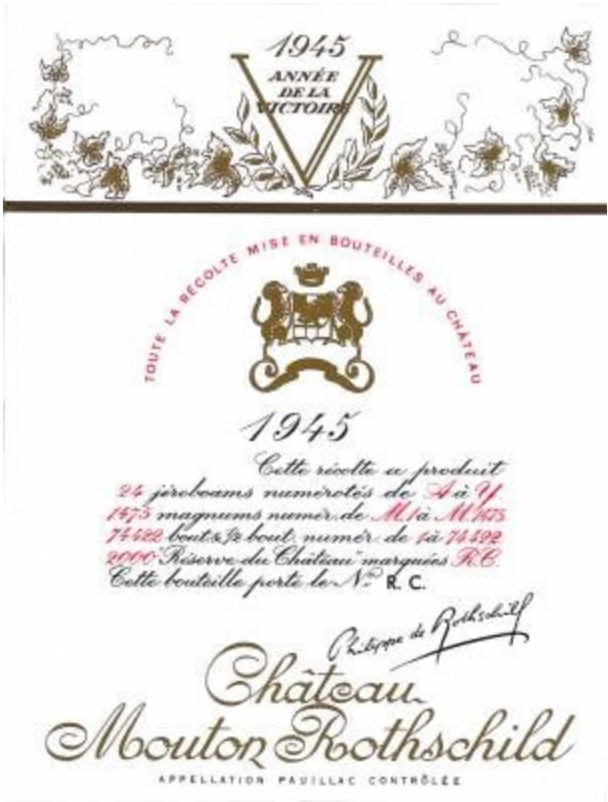 1945
ANNÉE
DE LA
VICTOIRE
TOUTE LA RÉCOLTE MISE EN BOUTEILLES AU CHÂTEAU
1945
Cette récolte a produit
24 jéroboams numérotés de A à Y
1475 magnums numér. de M1 à M1475
74422 bout. & ½ bout. numér. de 1 à 74422
2000 "Réserve du Château" marquées R.C.
Cette bouteille porte le No. R. C.
Philippe de Rothschild
Château
Mouton Rothschild
APPELLATION PAUILLAC CONTRÔLÉE